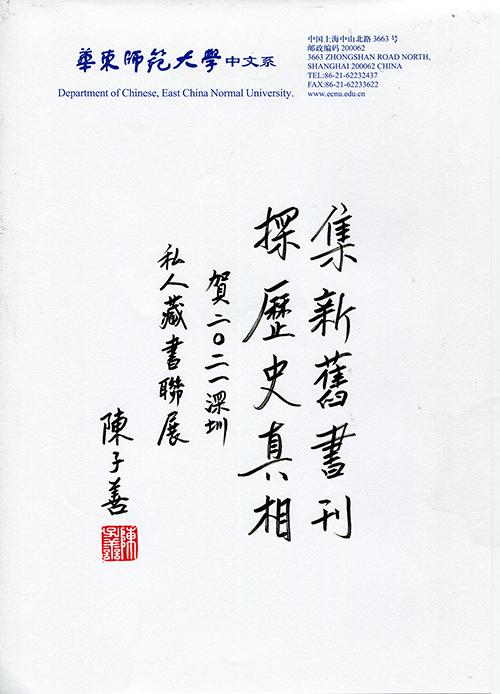 華東師範大學中文系
Department of Chinese, East China Normal University.
中国上海中山北路 3663 号
邮政编码 200062
3663 ZHONGSHAN ROAD NORTH,
SHANGHAI 200062 CHINA
TEL:86-21-62232437
FAX:86-21-62233622
www.ecnu.edu.cn
集新舊書刊
探歷史真相
賀二〇二一深圳
私人藏書聯展
陳子善
陳子善